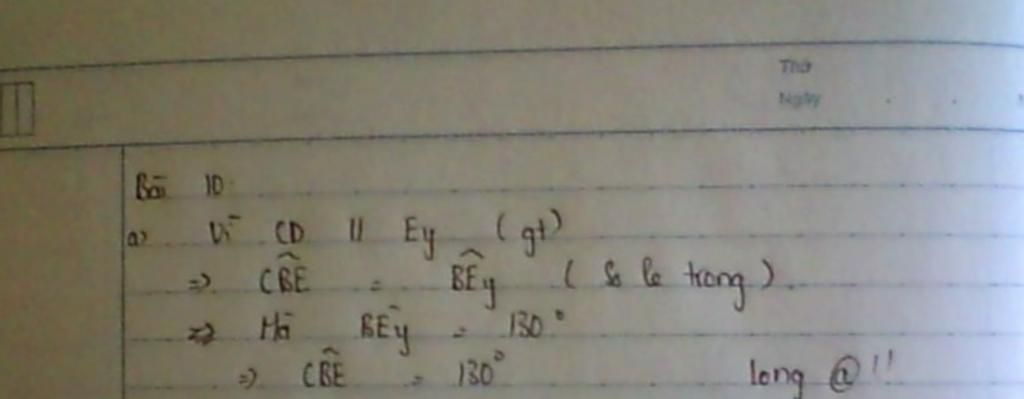 Thứ
Ngày
Bài 10
a) Vì CD // Ey (gt)
=> CBE = BEy (So le trong).
=> Mà BEy = 130°
=> CBE = 130° long @!!